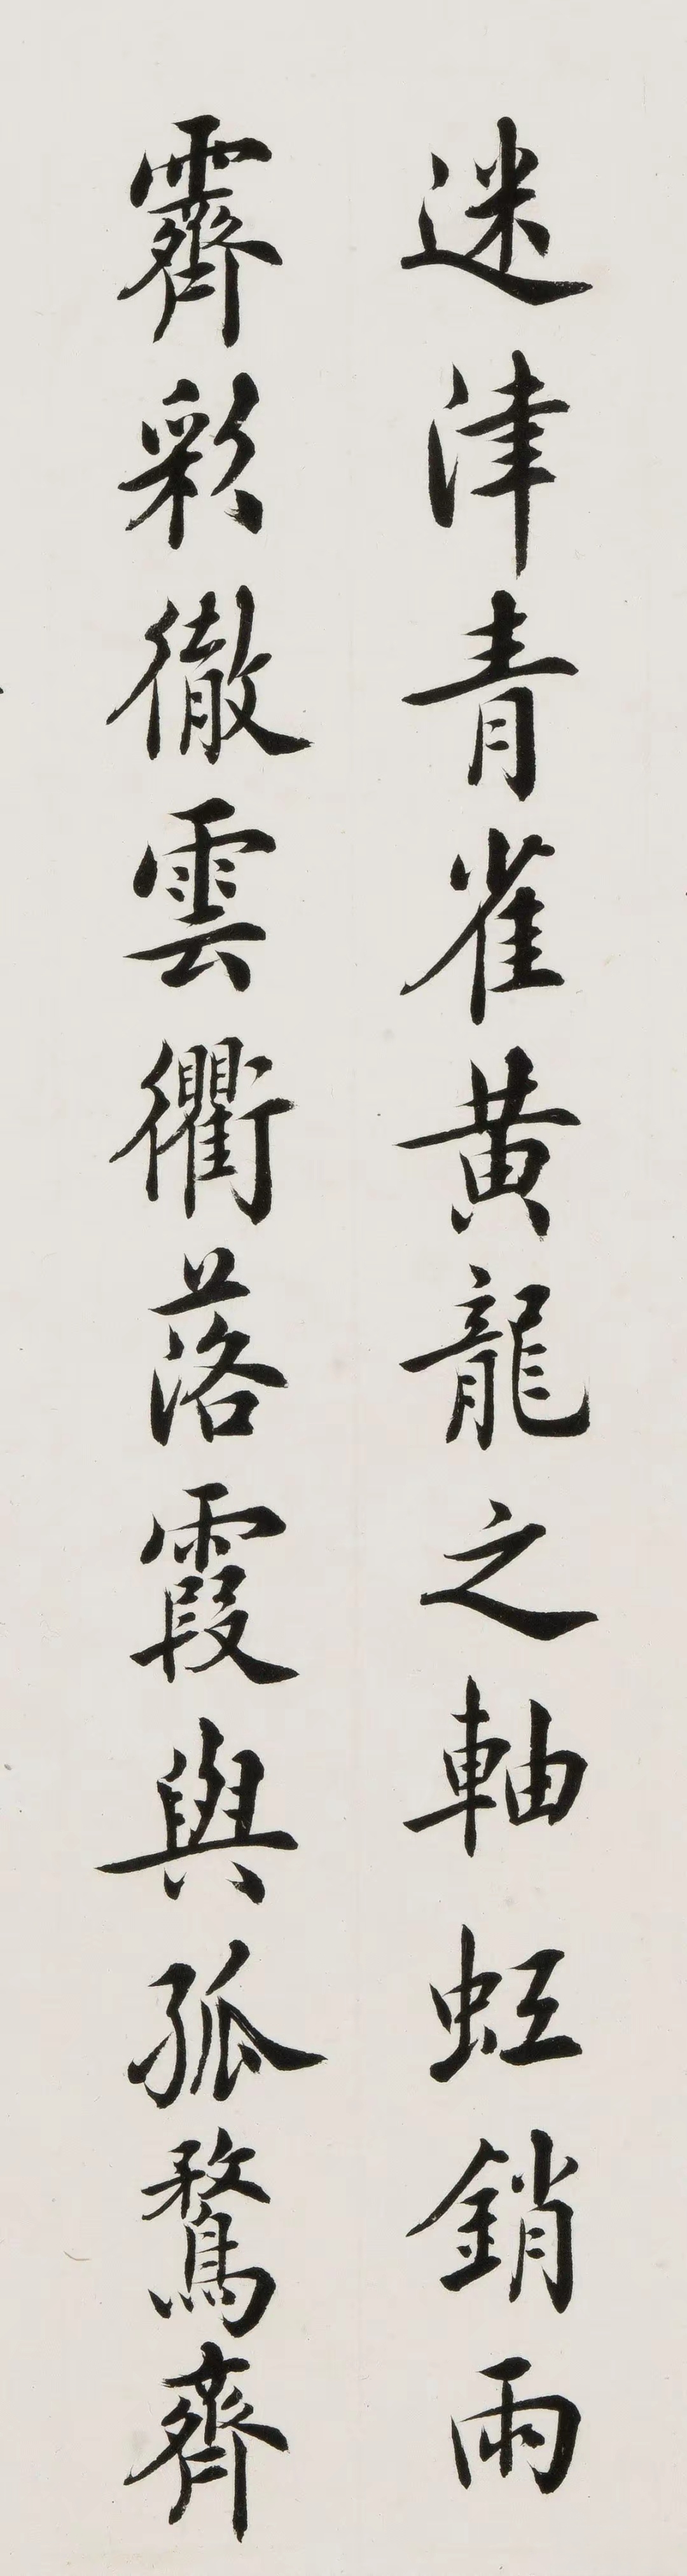 迷津青雀黃龍之軸虹銷雨
霽彩徹雲衢落霞與孤鶩齊